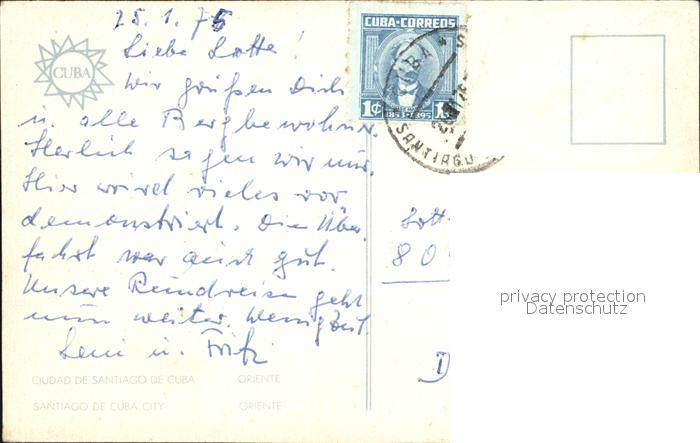 25.1.75
Liebe Lotte!
Wir grüßen Dich
u. alle Bergbewohner.
Herrlich sagen wir nur.
Hier wird vieles vor
demonstriert. Die Über
fahrt war auch gut.
Unsere Rundreise geht
nun weiter. Wenig Zeit.
Leni u. Fritz
CUBA
CUBA-CORREOS
1¢ 1853-1895 1¢
CUBA
SANTIAGO
Lott
80
D
privacy protection
Datenschutz
CIUDAD DE SANTIAGO DE CUBA ORIENTE
SANTIAGO DE CUBA CITY ORIENTE